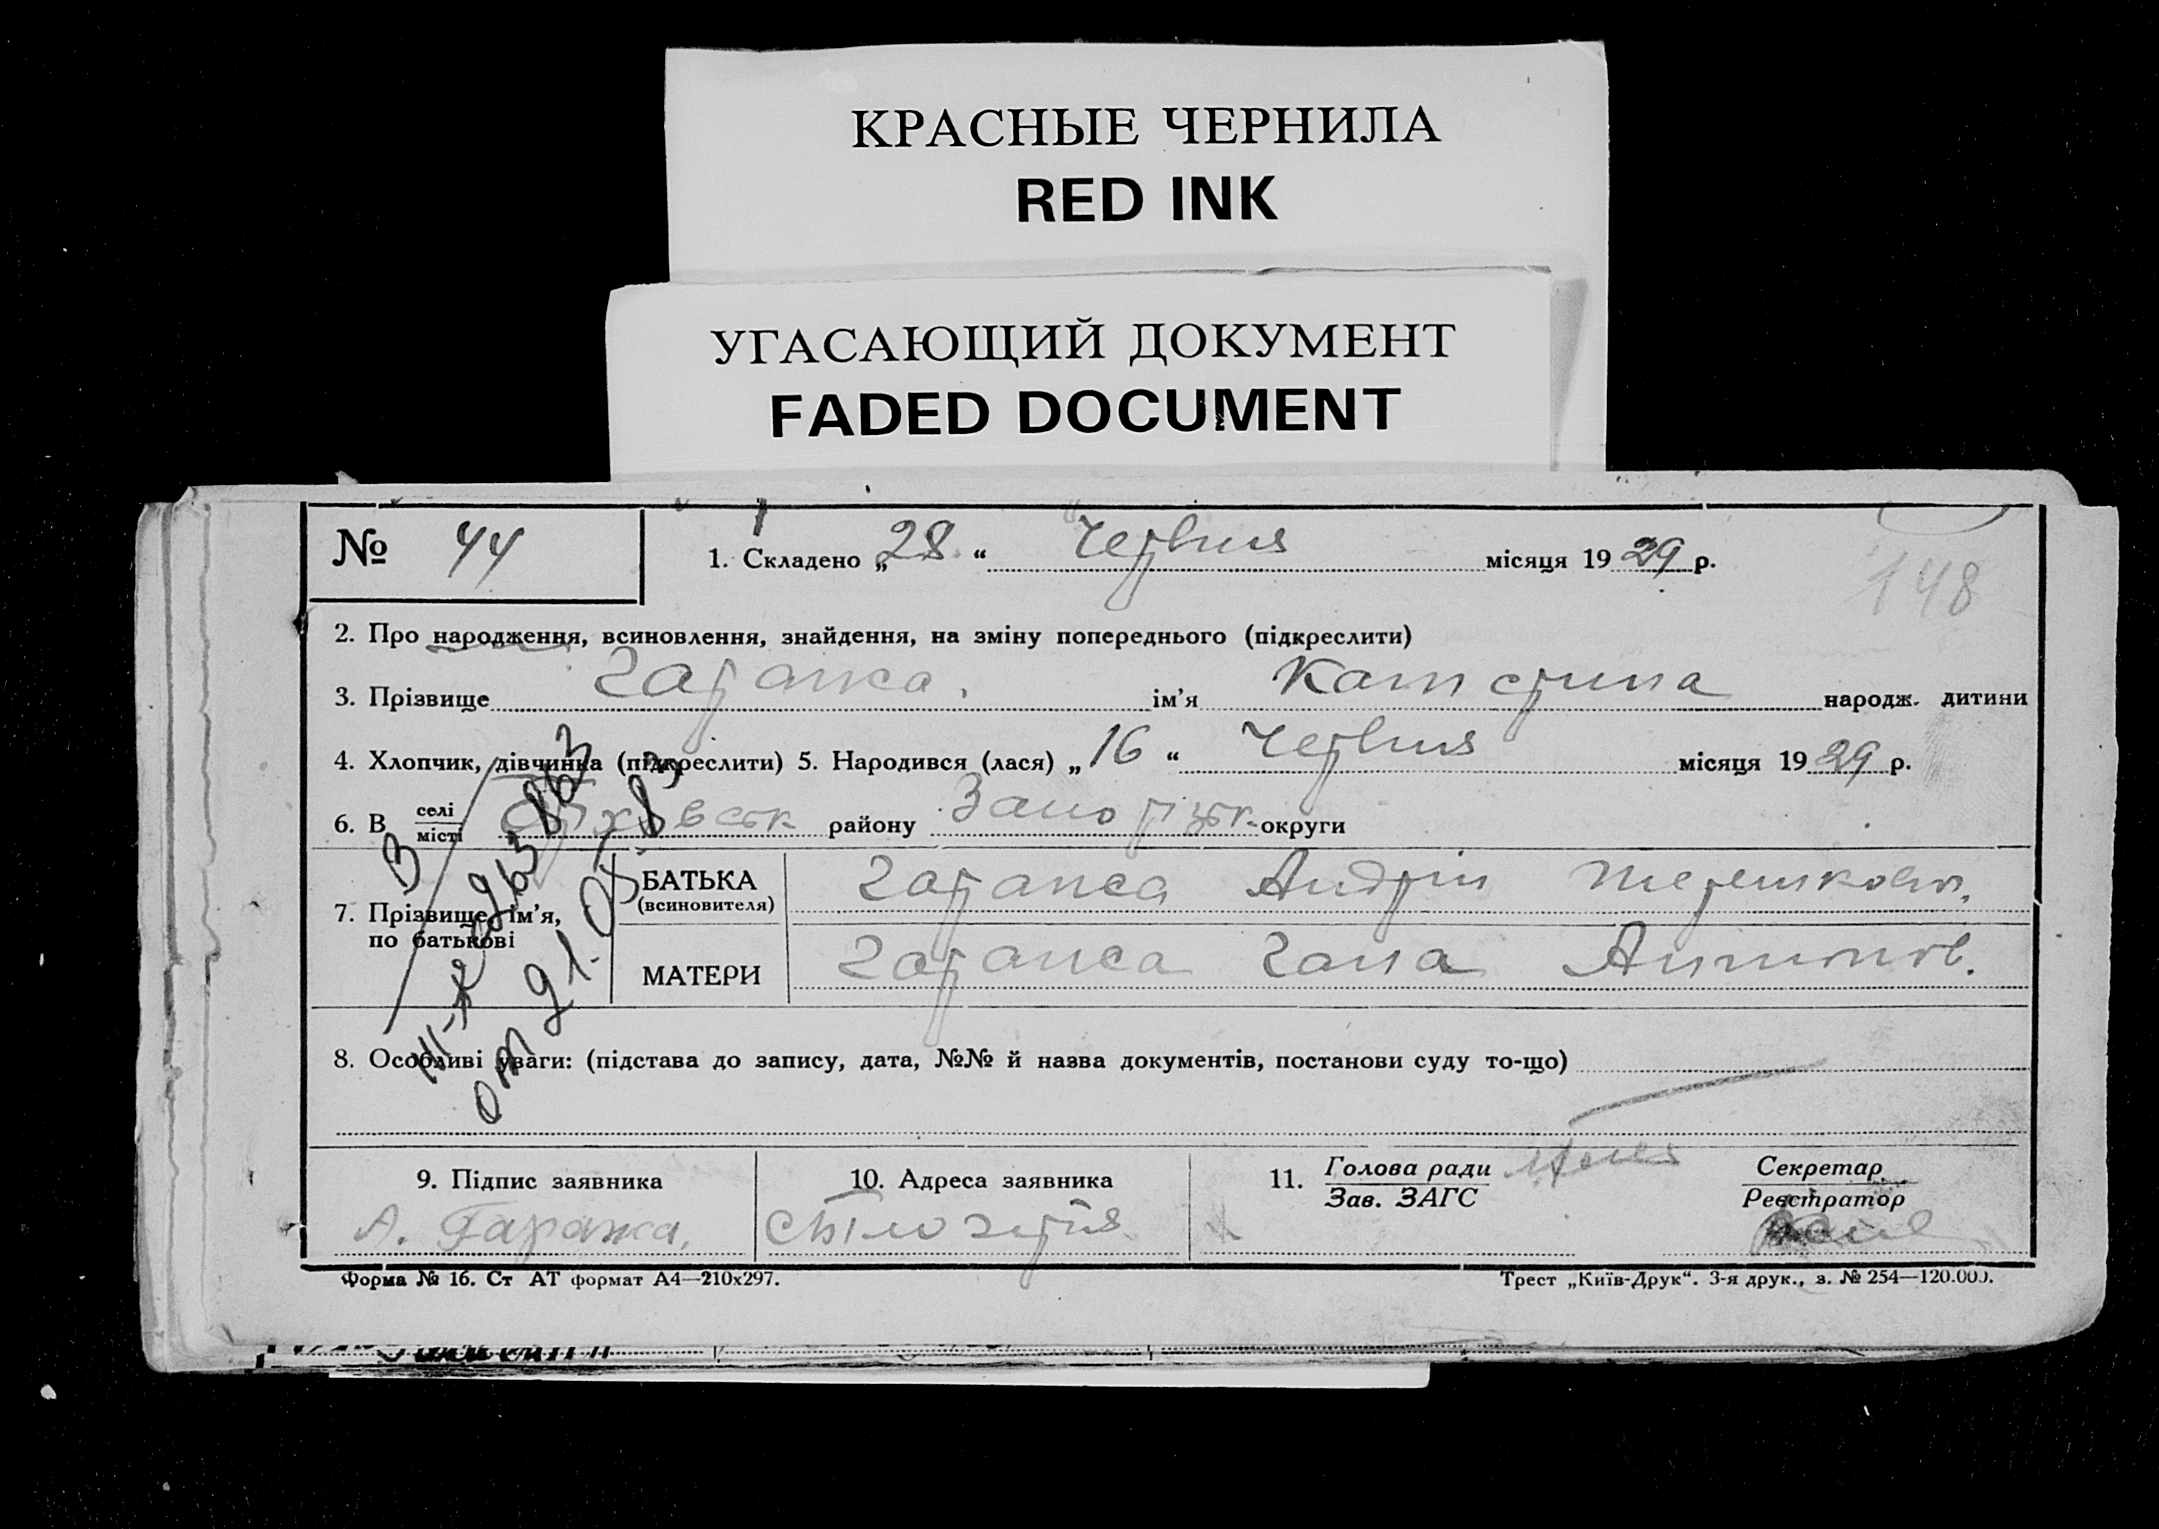 КРАСНЫЕ ЧЕРНИЛА
RED INK
УГАСАЮЩИЙ ДОКУМЕНТ
FADED DOCUMENT
№ 44
1. Складено „28“ Червня місяця 1929 р.
148
2. Про народження, всиновлення, знайдення, на зміну попереднього (підкреслити)
3. Прізвище Гаранжа. ім’я Катерина народж. дитини
4. Хлопчик, дівчинка (підкреслити) 5. Народився (лася) „16“ Червня місяця 1929 р.
6. В селі місті району Запорізьк. округи
7. Прізвище, ім’я, по батькові
БАТЬКА (всиновителя) Гаранжа Андрій
МАТЕРИ Гаранжа Гана Антонов.
8. Особливі уваги: (підстава до запису, дата, №№ й назва документів, постанови суду то-що)
от 21.05.83
9. Підпис заявника
А. Гаранжа.
10. Адреса заявника
11. Голова ради
Зав. ЗАГС
Секретар
Реєстратор
Форма № 16. Ст АТ формат А4—210х297.
Трест „Київ-Друк“. 3-я друк., з. № 254—120.000.